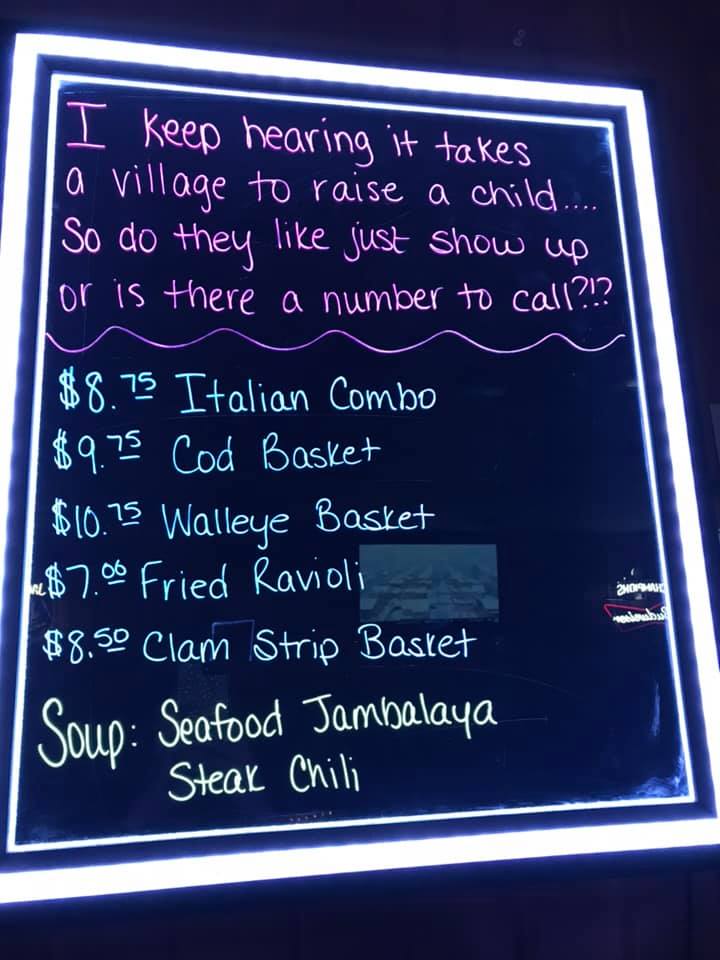 I keep hearing it takes
a village to raise a child....
So do they like just show up
or is there a number to call?!?
$8.75 Italian Combo
$9.75 Cod Basket
$10.75 Walleye Basket
$7.00 Fried Ravioli
$8.50 Clam Strip Basket
Soup: Seafood Jambalaya
Steak Chili
CHAMPIONS
Budweiser